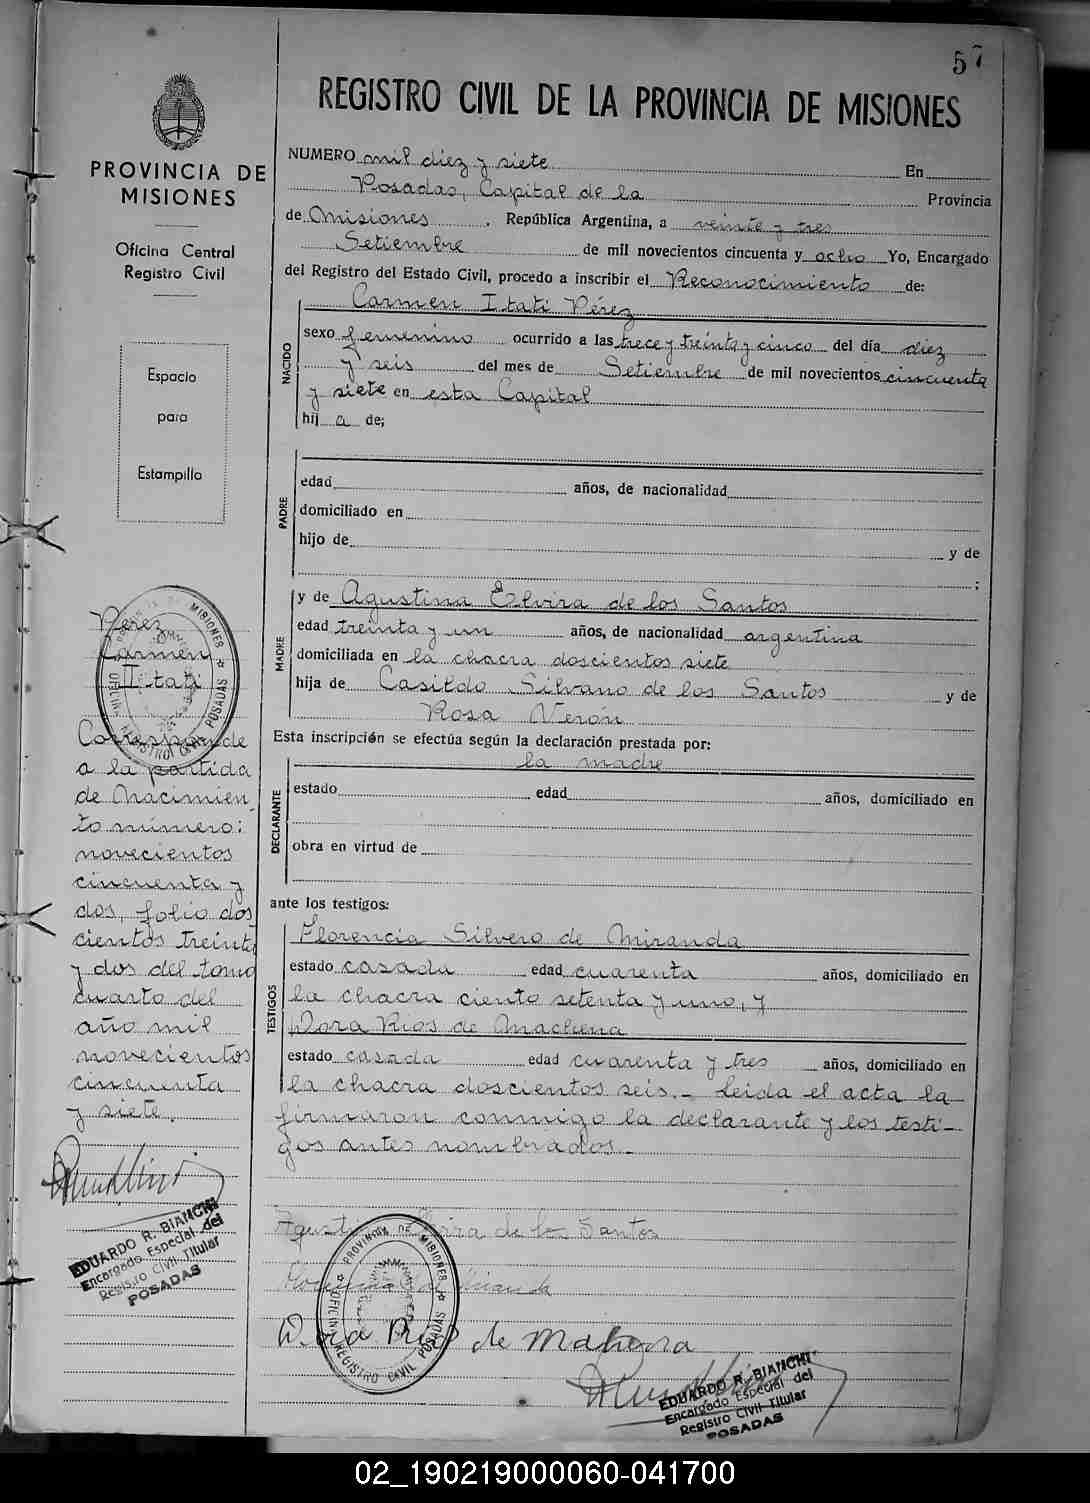 57
REGISTRO CIVIL DE LA PROVINCIA DE MISIONES
PROVINCIA DE
MISIONES
Oficina Central
Registro Civil
Espacio
para
Estampilla
NUMERO mil diez y siete En
Posadas, Capital de la Provincia
de Misiones. República Argentina, a veinte y tres
Setiembre de mil novecientos cincuenta y ocho Yo, Encargado
del Registro del Estado Civil, procedo a inscribir el Reconocimiento de:
Carmen Itatí Pérez
NACIDO
sexo femenino ocurrido a las trece y treinta y cinco del día diez
y seis del mes de Setiembre de mil novecientos cincuenta
y siete en esta Capital
hij a de;
PADRE
edad años, de nacionalidad
domiciliado en
hijo de y de
;
MADRE
y de Agustina Elvira de los Santos
edad treinta y un años, de nacionalidad argentina
domiciliada en la chacra doscientos siete
hija de Casildo Silvano de los Santos y de
Rosa Verón
Esta inscripción se efectúa según la declaración prestada por:
la madre
DECLARANTE
estado edad años, domiciliado en
obra en virtud de
ante los testigos:
TESTIGOS
Florencia Silvero de Miranda
estado casada edad cuarenta años, domiciliado en
la chacra ciento setenta y uno, y
Dora Rios de Machena
estado casada edad cuarenta y tres años, domiciliado en
la chacra doscientos seis.- Leida el acta la
firmaron conmigo la declarante y los testi-
gos antes nombrados.-
Pérez
Carmen
Itatí
Corresponde
a la partida
de Nacimien
to número:
novecientos
cincuenta y
dos, folio dos
cientos treinta
y dos del tomo
cuarto del
año mil
novecientos
cincuenta
y siete.
EDUARDO R. BIANCHI
Encargado Especial del
Registro Civil Titular
POSADAS
Agustina Elvira de los Santos
PROVINCIA DE MISIONES
OFICINA REGISTRO CIVIL POSADAS
Dora Rios de Mahena
EDUARDO R. BIANCHI
Encargado Especial del
Registro Civil Titular
POSADAS
02_190219000060-041700